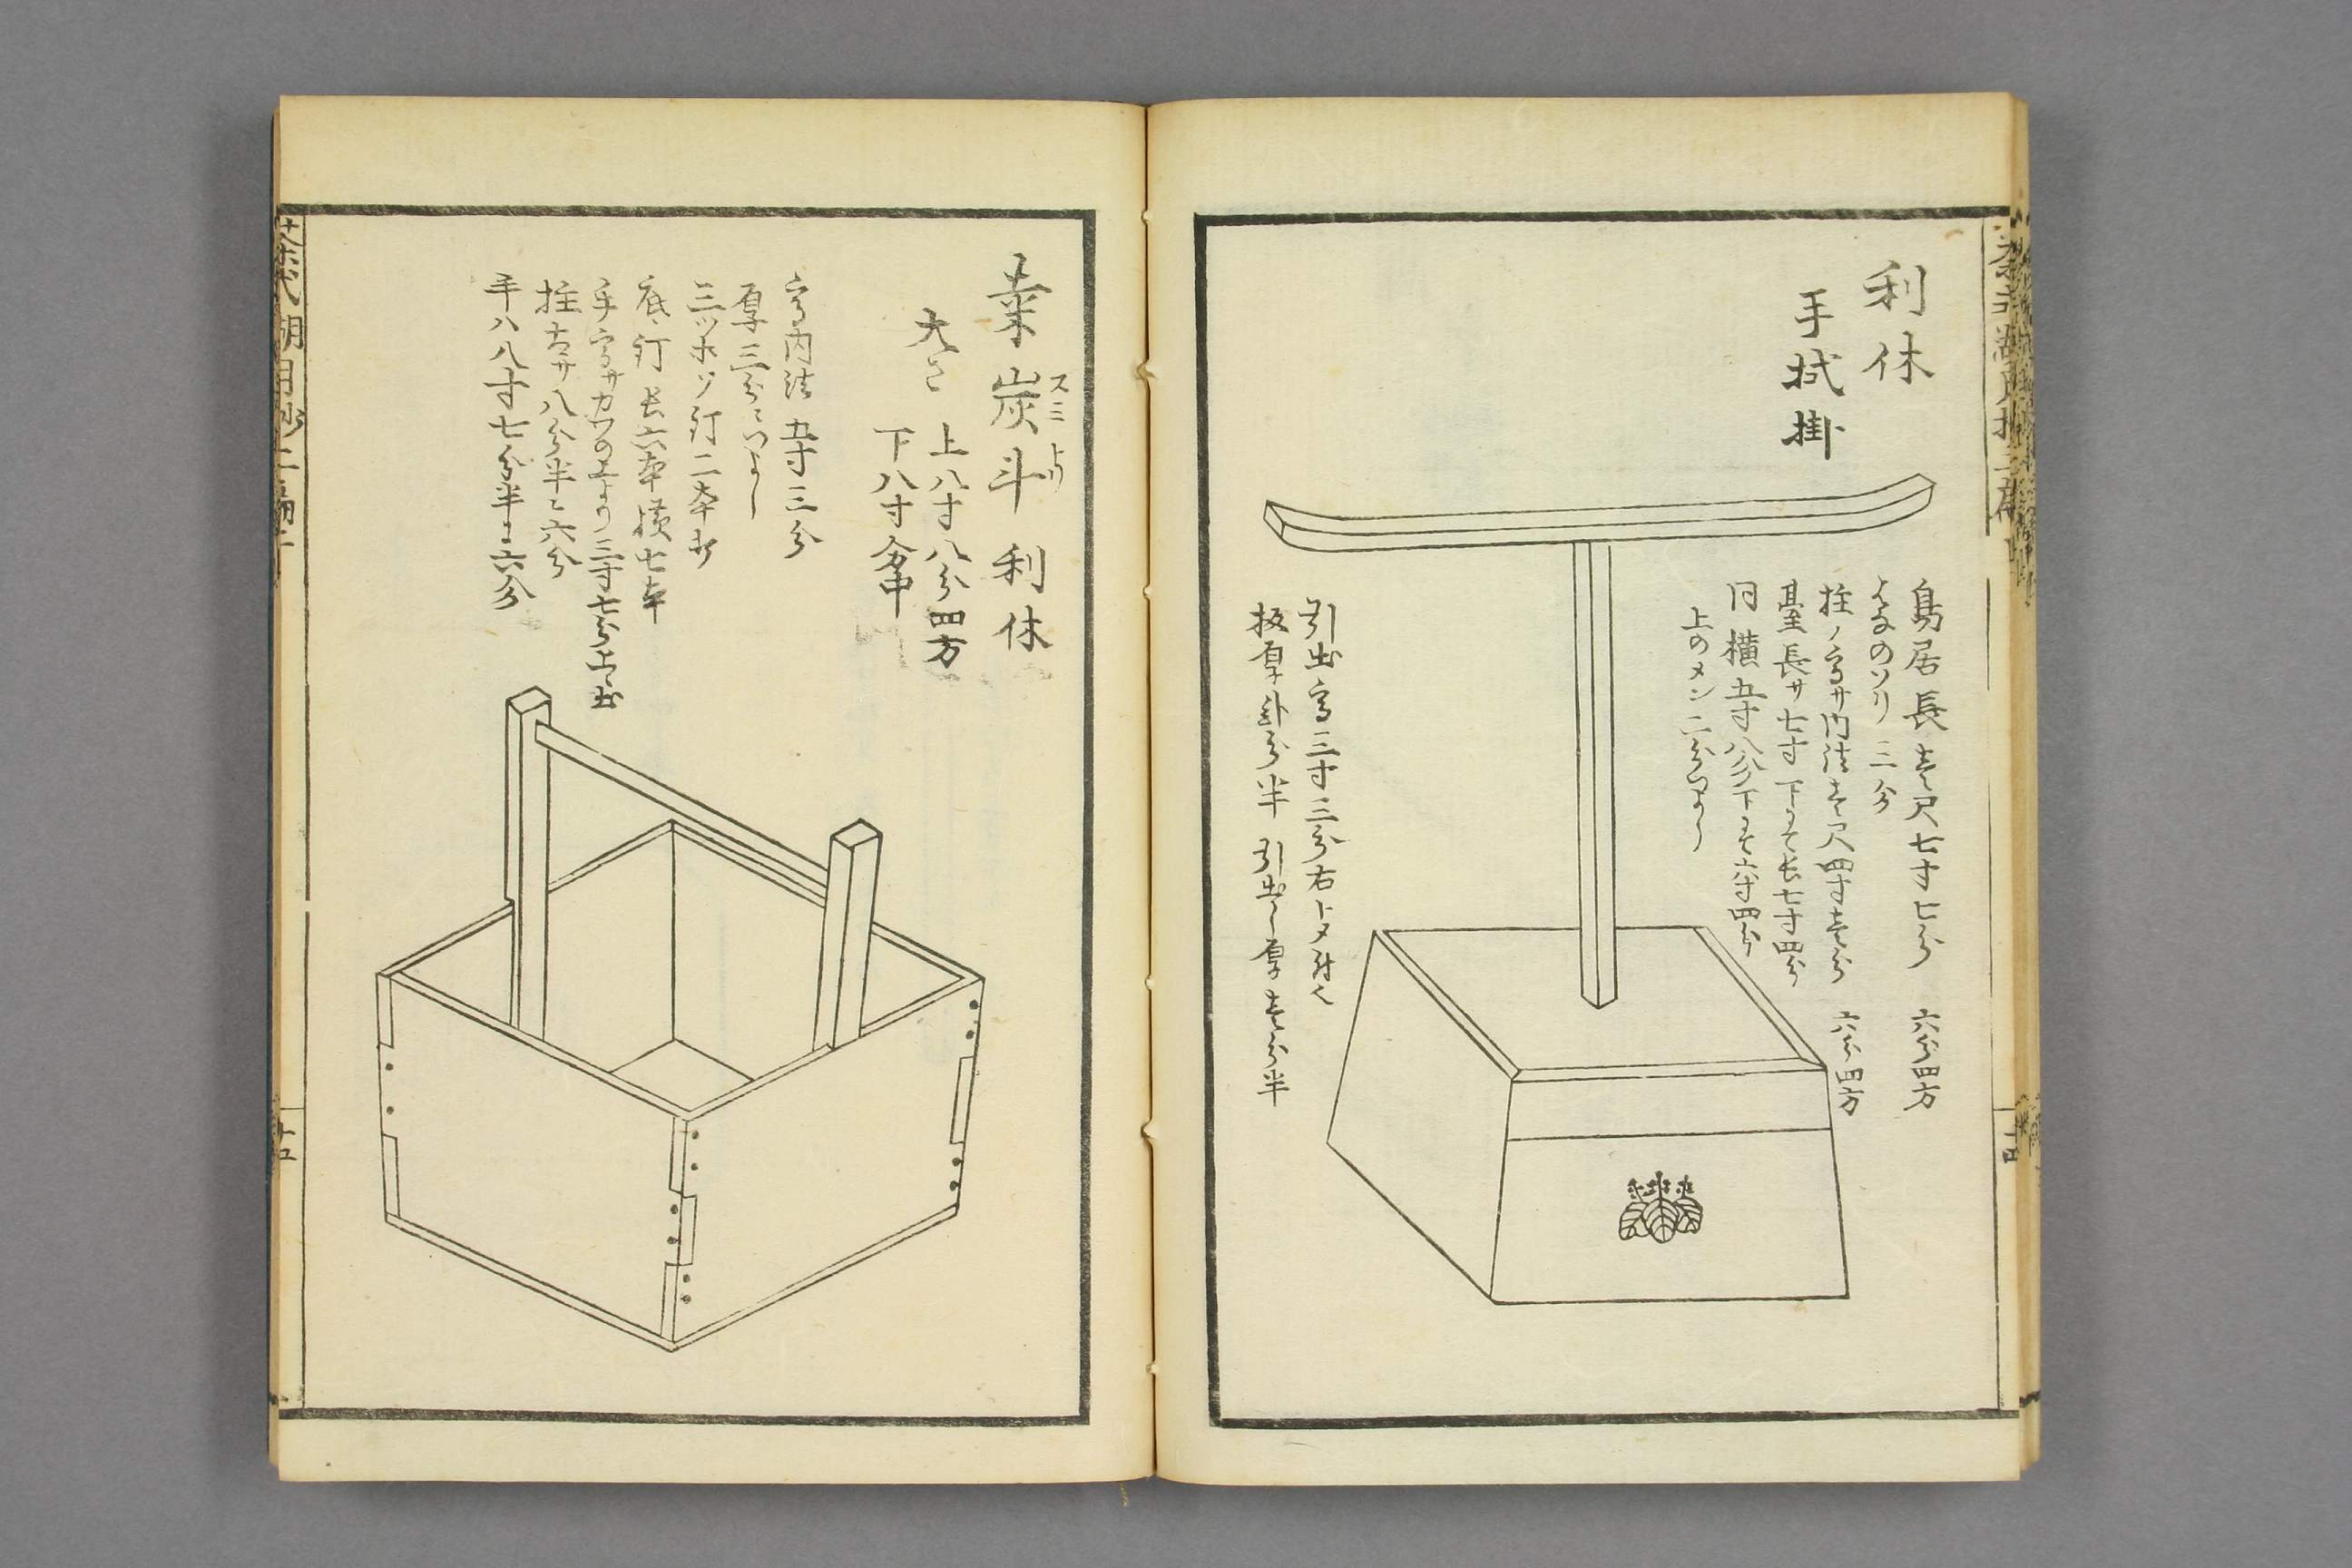 利休
手拭掛
鳥居長壱尺七寸七分 六分四方
はなのソリ三分
柱ノ高サ内法壱尺四寸壱分 六分四方
臺長サ七寸下ニて長七寸四分
同横五寸八分下ニて六寸四分
上のメン二分つよし
引出高三寸三分右トメ附く
板厚弐分半 引出し厚壱分半
桑炭斗 利休
スミ とり
大さ
上八寸八分四方
下八寸
高内法五寸三分
厚三分つよし
三ツホソ釘二本ツヽ
底釘長六本横七本
手高サカワの上より三寸七分上ニ出
柱大サ八分半ニ六分
手八八寸七分半ニ六分
茶式湖月抄二編